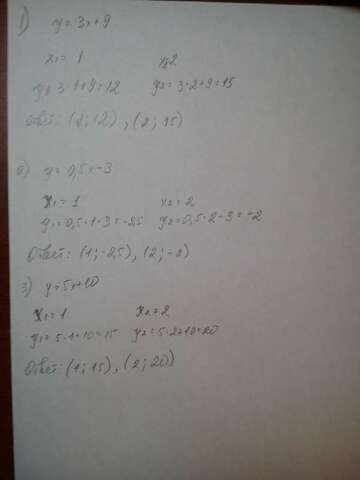 1) y=3x+9
x₁=1 x₂=2
y₁=3·1+9=12 y₂=3·2+9=15
Ответ: (1;12), (2;15)
2) y=0,5x-3
x₁=1 x₂=2
y₁=0,5·1-3=-2,5 y₂=0,5·2-3=-2
Ответ: (1;-2,5), (2;-2)
3) y=5x+10
x₁=1 x₂=2
y₁=5·1+10=15 y₂=5·2+10=20
Ответ: (1;15), (2;20)